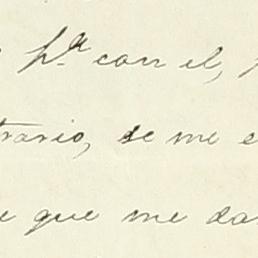 pª con el,
trario, se me e
e que me da